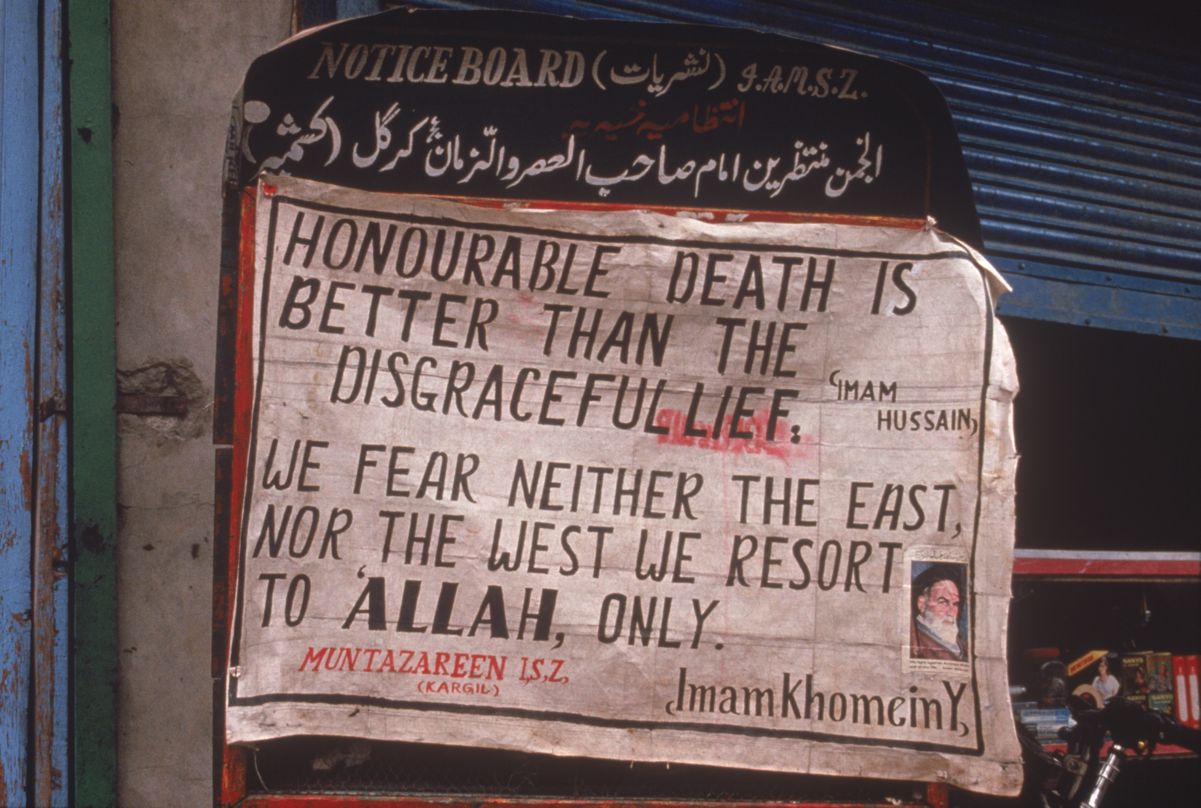 NOTICE BOARD (نشریات) J.A.M.S.Z.
انجمن منتظرین امام صاحب العصر والزمان کرگل (کشمیر
HONOURABLE DEATH IS
BETTER THAN THE
DISGRACEFUL LIEF.
‘IMAM
HUSSAIN,
WE FEAR NEITHER THE EAST,
NOR THE WEST WE RESORT
TO ‘ALLAH, ONLY.
MUNTAZAREEN I,S,Z,
(KARGIL)
‘Imam KhomeinY,